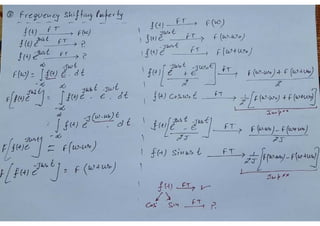 ③ Frequency Shifting Property
f(t) —FT→ F(ω)
f(t) e^{jω₀t} —FT→ ?
f(t) e^{-jω₀t} —FT→ ?
F(ω) = ∫_{-∞}^{∞} f(t) e^{-jωt} dt
F[f(t) e^{jω₀t}] = ∫_{-∞}^{∞} f(t) e^{jω₀t} e^{-jωt} dt
= ∫_{-∞}^{∞} f(t) e^{-j(ω-ω₀)t} dt
F[f(t) e^{jω₀t}] = F(ω-ω₀)
F[f(t) e^{-jω₀t}] = F(ω+ω₀)
f(t) —FT→ F(ω)
f(t) e^{jω₀t} —FT→ F(ω-ω₀)
f(t) e^{-jω₀t} —FT→ F(ω+ω₀)
f(t) [e^{jω₀t} + e^{-jω₀t} / 2] —FT→ F(ω-ω₀) + F(ω+ω₀) / 2
f(t) Cosω₀t —FT→ 1/2 [F(ω-ω₀) + F(ω+ω₀)]
Imp**
f(t) [e^{jω₀t} - e^{-jω₀t} / 2j] —FT→ F(ω-ω₀) - F(ω+ω₀) / 2j
f(t) Sinω₀t —FT→ 1/2j [F(ω-ω₀) - F(ω+ω₀)]
Imp**
f(t) —FT→ ✓
Cos Sin —FT→ ?